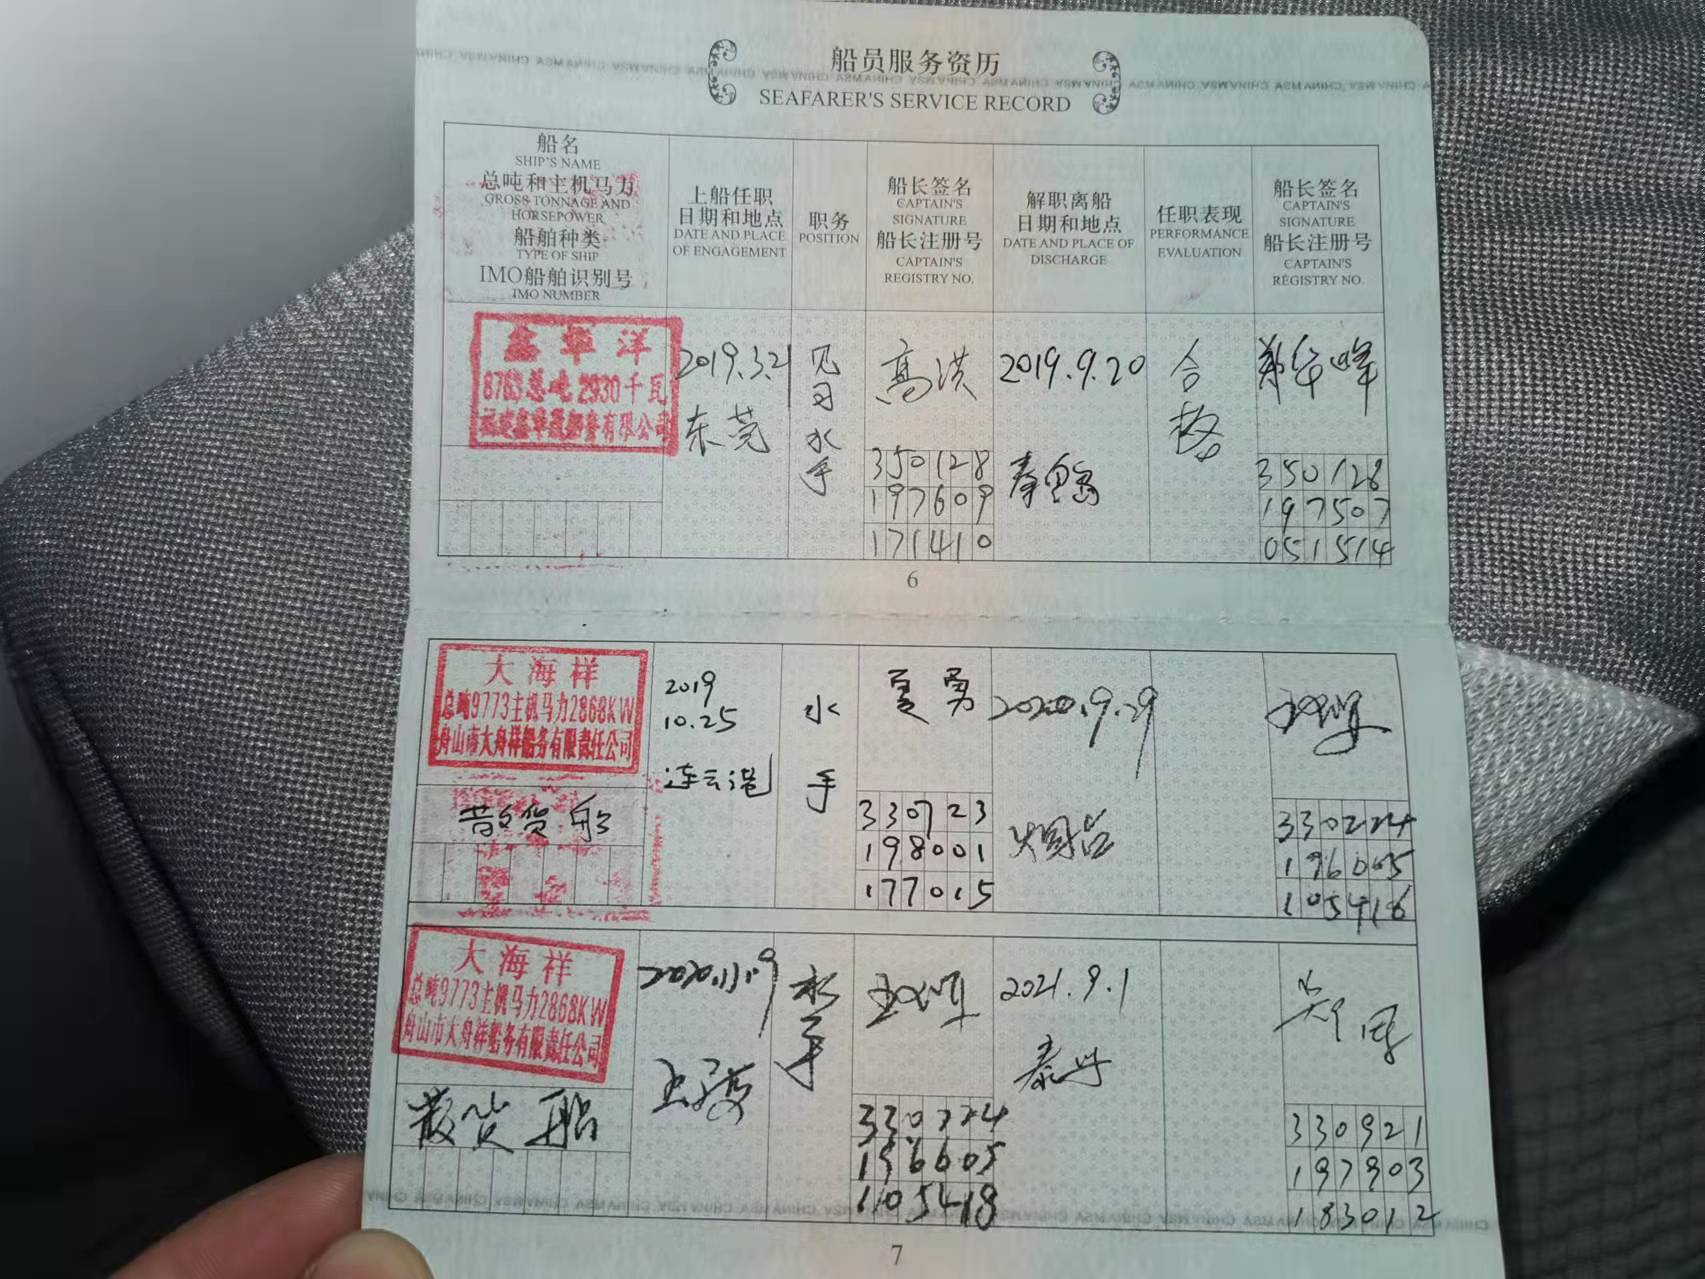 船员服务资历
SEAFARER'S SERVICE RECORD
船名
SHIP'S NAME
总吨和主机马力
GROSS TONNAGE AND
HORSEPOWER
船舶种类
TYPE OF SHIP
IMO船舶识别号
IMO NUMBER
上船任职
日期和地点
DATE AND PLACE
OF ENGAGEMENT
职务
POSITION
船长签名
CAPTAIN'S
SIGNATURE
船长注册号
CAPTAIN'S
REGISTRY NO.
解职离船
日期和地点
DATE AND PLACE OF
DISCHARGE
任职表现
PERFORMANCE
EVALUATION
船长签名
CAPTAIN'S
SIGNATURE
船长注册号
CAPTAIN'S
REGISTRY NO.
鑫华洋
8763总吨2930千瓦
务有限公司
2019.3.21
东莞
见
习
水
手
高洪
350128
197609
171410
2019.9.20
秦皇岛
合
格
华峰
350128
197507
051514
6
大海祥
总吨9773主机马力2868KW
舟山市大舟祥船务有限责任公司
散货船
2019
10.25
连云港
水
手
夏勇
330723
198001
177015
2020.9.29
330224
196605
105418
大海祥
总吨9773主机马力2868KW
舟山市大舟祥船务有限责任公司
散货船
水
手
330224
196605
105418
2021.9.1
330921
197903
183012
7